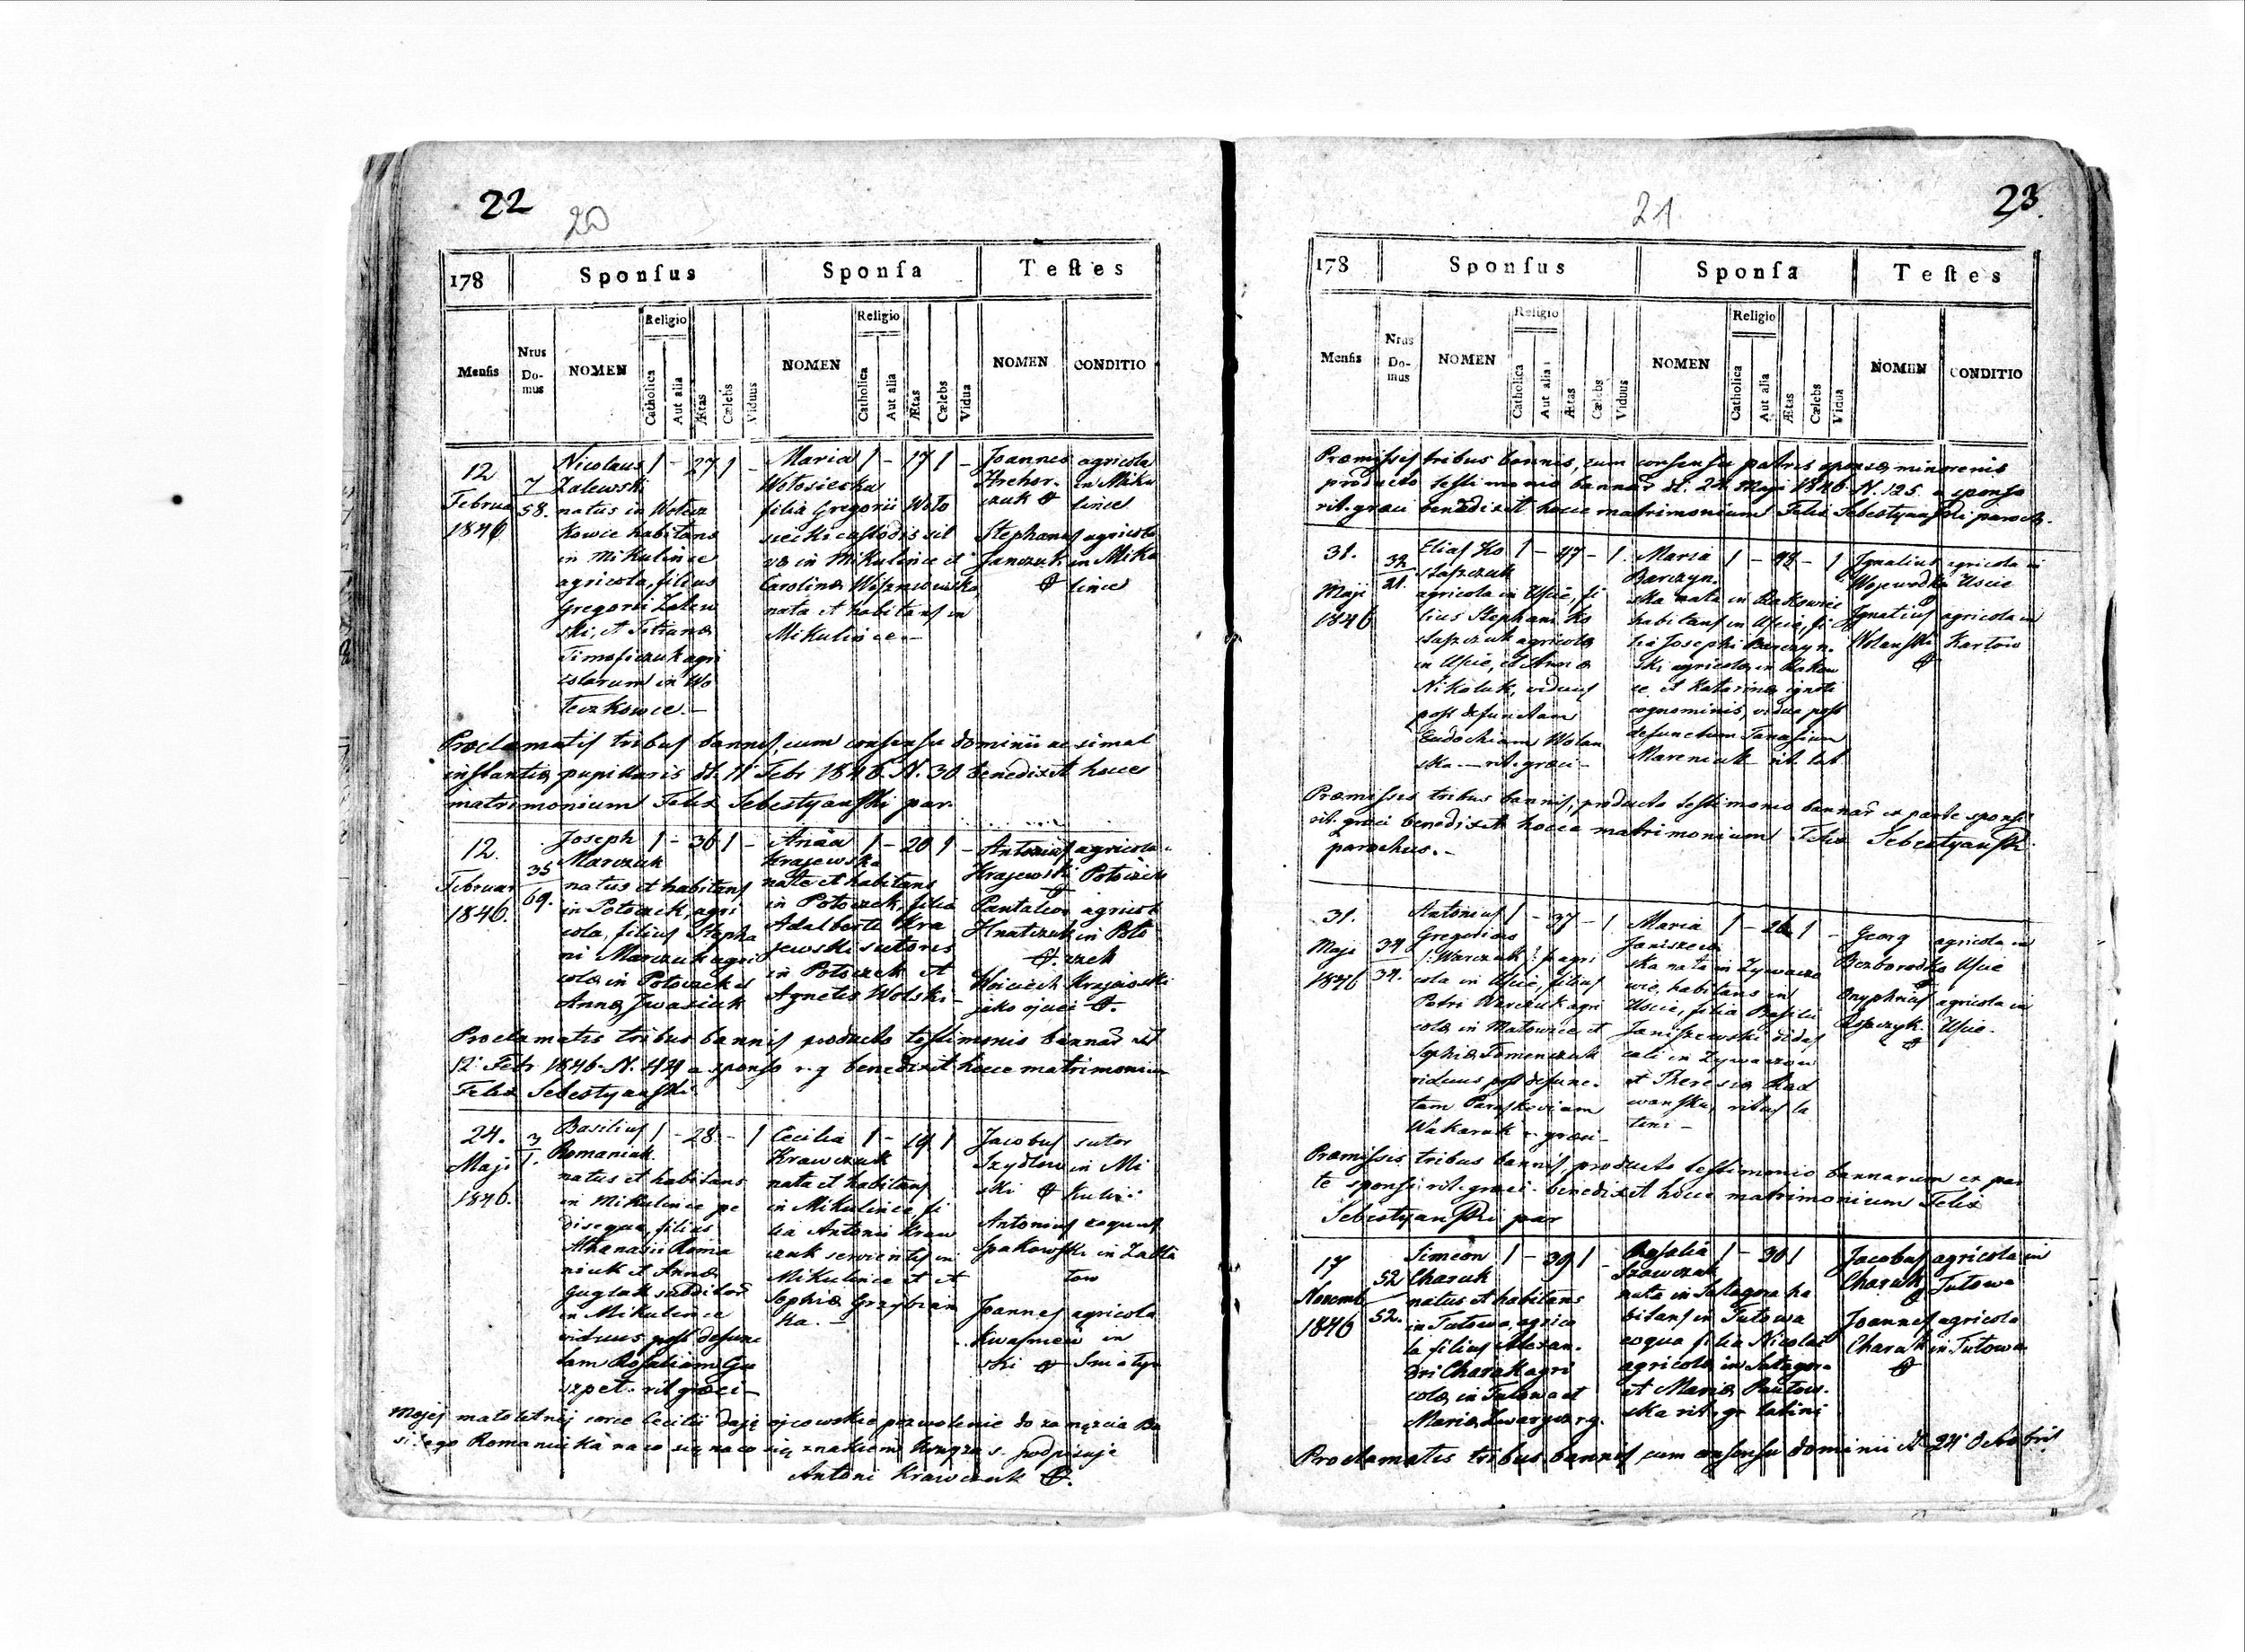 22
20
178 Sponsus Sponsa Testes
Mensis Nrus Domus NOMEN Religio Catholica Aut alia Ætas Cælebs Viduus NOMEN Religio Catholica Aut alia Ætas Cælebs Vidua NOMEN CONDITIO
12 Februa 1846
7
58.
Nicolaus 1 - 27 1 -
Zalewski
natus in Wolcz
kowce habitans
in Mikulince
agricola, filius
Gregorii Zalew
ski, et Tetianæ
Timoficzuk agri
colarum in Wo
lczkowce.-
Maria 1 - 17 1 -
Wolosiecka
filia Gregorii Woło
siecki custodis sil
væ in Mikulince et
Carolinæ
nata et habitans in
Mikulince.-
Joannes agricola
Hrehor- in Miku
czuk lince
Stephanus agricola
Janczuk in Miku
lince
Proclamatis tribus bannis, cum consensu dominii ac simul
instantiæ pupillaris dt. 11 Febr 1846. N. 30 benedixit hocce
matrimonium Felix Sebestyanski par.
12.
Februar
1846.
35
69.
Joseph 1 - 36 1 -
Marczuk
natus et habitans
in Potoczek, agri
cola, filius Stepha
ni Marczuk agri
colæ in Potoczek et
Annæ Iwasiuk
Anna 1 - 20 1 -
Krajewska
nata et habitans
in Potoczek, filia
Adalberti Kra
jewski sutoris
in Potoczek et
Agnetis Wolski-
Antonius agricola
Krajewski Potoczek
Pantaleon agricol
Hnatczuk in Poto
czek
Woiciech Krajewski
jako ojciec
Proclamatis tribus bannis producto testimonio bannar dt
12 Febr 1846- N. a sponso r. g benedixit hocce matrimonium
Felix Sebestyanski.
24.
Maji
1846.
3
1.
Basilius 1 - 28 - 1
Romaniuk
natus et habitans
in Mikulince pe
disequa, filius
Athanasii Roma
niuk et Annæ
Guglak subditor
in Mikulince
viduus post defunc
tam Rosaliam Gu
szpet. rit græci-
Cecilia 1 - 19 1
Krawczuk
nata et habitans
in Mikulince, fi
lia Antonii Kraw
czuk servientis in
Mikulince et et
Sophiæ Grzybian
ka. -
Jacobus sutor
Szydłow in Mi
ski kulin
Antonius coquus
Spakowski in Zału
tow
Joannes agricola
Kwasniew in
ski Sniatyn
Mojej małoletnij corce Cecilii daję ojcowskie pozwolenie do zamęzcia Ba
silego Romaniuka na co się na co się znakiem krzyza s. podpisuje
Antoni Krawczuk
23.
21
178 Sponsus Sponsa Testes
Mensis Nrus Domus NOMEN Religio Catholica Aut alia Ætas Cælebs Viduus NOMEN Religio Catholica Aut alia Ætas Cælebs Vidua NOMEN CONDITIO
Præmissis tribus bannis, cum consensu patris sponsæ minorenis
producto testimonio bannar dt. 24 Maji 1846 N. 125. a sponso
rit. græci benedixit hocce matrimonium Felix Sebestyanski paroch.
31.
Maji
1846
32
21.
Elias Ko 1 - 47 - 1
staszczuk
agricola in Uscie, fi
lius Stephani Ko
staszczuk agricolæ
in Uscie, et Annæ
Nikoluk, viduus
post defunctam
Eudochiam Wolan
ska. - rit. græci -
Maria 1 - 48 - 1
Barczyn-
ska nata in Rakowiec
habitans in Uscie, fi
lia Josephi Barczyn-
ski agricolæ in Rakow
ce, et Katarinæ ignoti
cognominis, vidua post
defunctum Tanasium
Mareniuk rit. lat
Ignatius agricola in
Wojewodka Uscie
Ignatius agricola in
Wolanski Karłow
Præmissis tribus bannis, producto testimonio bannar ex parte sponsi
rit. græci benedixit hocce matrimonium Felix Sebestyanski
parochus.-
31.
Maji
1846
34.
34.
Antonius 1 - 37 - 1
Gregorius
Warczuk agri
cola in Uscie, filius
Petri Warczuk agri
colæ in Matowce, et
Sophiæ Tomenczuk
viduus post defunc-
tam Paraskeviam
Wakaruk r. græci-
Maria 1 - 26 1 -
Janiszew
ska nata in Zywaczo
wie, habitans in
Uscie, filia Basilii
Janiszewski didas
cali in Zywaczow
et Theresiæ Rad
wanska, ritus la
tini -
Georg agricola in
Bezborodko Uscie
Onyphrius agricola in
Uscie.
Præmissis tribus bannis, producto testimonio bannarum ex par
te sponsi rit. græci benedixit hocce matrimonium Felix
Sebestyanski par
17
Novemb
1846
52
52.
Simeon 1 - 39 1 -
Charuk
natus et habitans
in Tułowa, agrico
la filius Alexan-
dri Charuk agri
colæ in Tułowa et
Mariæ r. g.
Rosalia 1 - 30 1
Szawczuk
nata in Sadagora ha
bitans in Tułowa
coqua filia Nicolai
agricolæ in Sadagora
et Mariæ
ska rit. gr latini
Jacobus agricola in
Charuk Tułowa
Joannes agricola
Charuk in Tułowa
Proclamatis tribus bannis cum consensu dominii dt. 24 Octobris